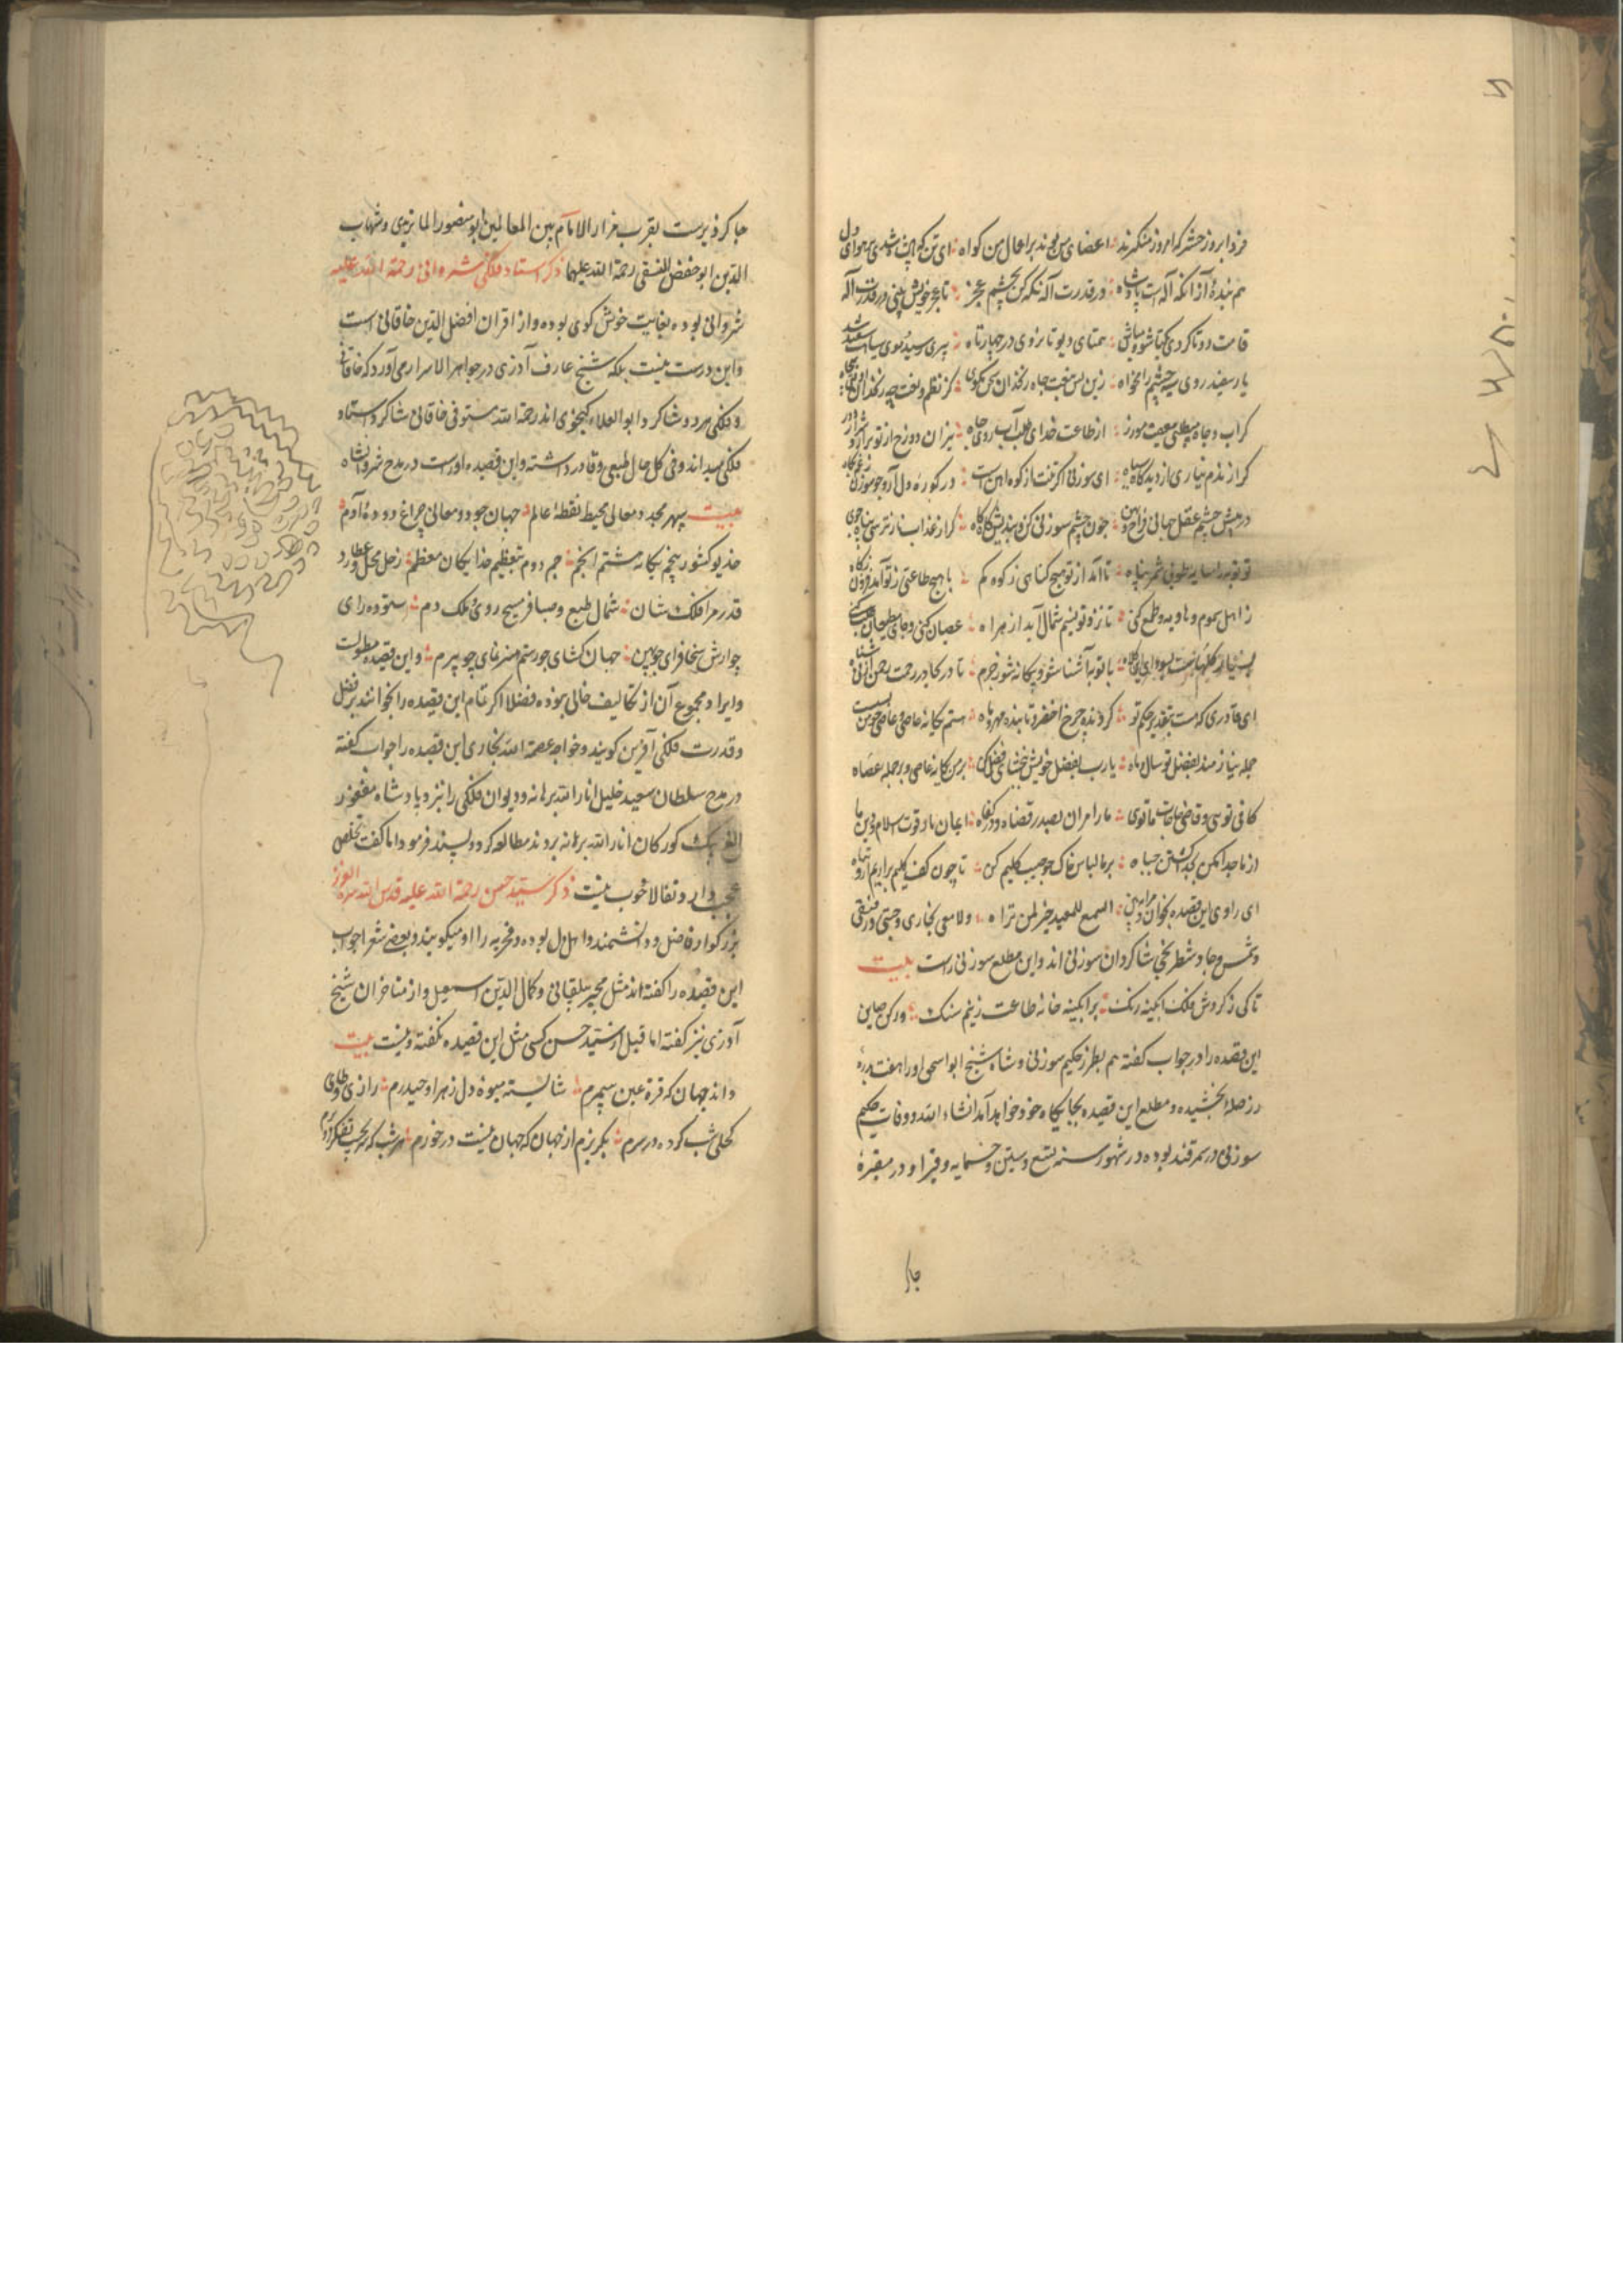 فردا بروز حشر که امروز منکرند اعضای من بوند بر اعمال من کواه ای تن که پادشاه شدی بر هوای دل
هم بندهٔ آنرا که آله است پادشاه در قدرت آله نکه کن بچشم عجز تا عجز خویش بینی در قدرت آله
قامت دو تا کردی یکتا شو و مباش همتای دیو تا نروی در چهار تاه پیری رسید و موی سیاهت سفید شد
یار سفید روی سیه چشم را مخواه زین پس بخت چاه زنخدان سخن مکوی کز نظم
کر آب و جاه میطلبی معصیت مورز از طاعت خدای طلب آب روی و جاه میزان دوزخ از تو برآرد
کر از ندم نیاری از دیدگاه میاه ای سوزنی اکر تنت از کوه آهن است در کوره دل آر و چو سوزن
در پیش چشم عقل جهانی فراخ رو چون چشم سوزنی کن و بندیش گاه گاه کر از عذاب نار بترسی پناه جوی
تو توبه را سایه طوبی شمر پناه نا آمد از تو هیچ کناهی ز کوه کم با هیچ طاعتی ز تو آمد فزون ز کاه
ز اهل سموم و هاویه و طمع کنی تا زو نسیم شمال آید از هراه عصیان کنی و جای مطیعان
با توبه آشنا شو و بیکانه شو ز جرم تا در بحار رحمت رحمن کنی شناه
ای قادری که هست بتقدیر حکم تو کردنده چرخ اخضر و تابنده مهر و ماه هستم یکانه عاصی و عاصی چو من بسیست
جمله نیازمند بفضل تو سال و ماه یارب بفضل خویش ببخشای فضل کن بر من یکانه عاصی و بر جمله عصاه
کافی توئی و قاضی حاجات ما توئی ما را مران بصدر قضاه و در کفاه ایمان ما و قوت اسلام و دین ما
از ما جدا مکن بر ما لباس خاک چو جیب کلیم کن تا چون کف کلیم برآریم
ای راوی این قصیده بخوان السمع للمعید خیر لمن تراه و لامعی بخاری و جنتی و نسفی
و شمس و جاد شطرنجی شاکردان سوزنی اند و این مطلع سوزنی راست بیت
تا کی ز کردش فلک آبکینه رنک بر آبکینه خانه طاعت زنیم سنک و رکن صاین
این قصیده را در جواب کفته هم بطرز حکیم سوزنی و شاه شیخ ابو اسحق او را هفت بدره
زر صله بخشیده و مطلع این قصیده بجایکاه خود خواهد آمد انشاء الله و وفات حکیم
سوزنی در سمرقند بوده در شهور سنه تسع و ستین و خمسمایه و قبر او در مقبرهٔ
جا کر
جا کردیزه است بقرب مزار الامام بین المعالمین ابو منصور الماتریدی و شهاب
الدین ابو حفص النسفی رحمة الله علیهما ذکر استاد فلکی شروانی رحمة الله علیه
شروانی بوده بغایت خوش کوی بوده و از اقران افضل الدین خاقانی است
و این درست نیست بلکه شیخ عارف آذری در جواهر الاسرار می آورد که خاقانی
و فلکی هر دو شاکرد ابو العلاء کنجوی اند رحمة الله و حمد الله مستوفی خاقانی شاکرد استاد
فلکی میداند و فی کل حال طبعی وقاد داشته و این قصیده او راست در مدح شروانشاه
بیت سپهر مجد و معالی محیط نقطهٔ عالم جهان جود و معانی چراغ دودهٔ آدم
خدیو کشور پنجم یکانه هشتم انجم جم دوم بتعظیم خدایکان معظم زحل محل و عطارد
قدر مر افلک شان شمال طبع و صبا فر مسیح روی ملک دم ستوده رای
چو آرش سخا فزای چو بیژن جهان کشای چو رستم هنر نمای چو نیرم و این قصیده مطولست
و ایراد مجموع آن از تکالیف خالی نبوده فضلا اکر تمام این قصیده را بخوانند بر فضل
و قدرت فلکی آفرین کویند و خواجه عصمة الله بخاری این قصیده را جواب کفته
در مدح سلطان سعید خلیل انار الله برهانه و دیوان فلکی را نزد پادشاه مغفور
الغ بیک کورکان انار الله برهانه بردند مطالعه کرد و پسند فرمود اما کفت تخلص
عجب دارد و تفالا خوب نیست ذکر سید حسن رحمة الله علیه قدس الله سره العزیز
بزرکوار و فاضل و دانشمند و اهل دل بوده و فخریه را او میکویند و بعضی شعرا جواب
این قصیده را کفته اند مثل مجیر بیلقانی و کمال الدین اسمعیل و از متاخران شیخ
آذری نیز کفته اما قبل از سید حسن کسی مثل این قصیده نکفته و نیست بیت
داند جهان که قرة عین پیمبرم شایسته میوهٔ دل زهرا و حیدرم
کحلی شب کرده در سرم بکریزم از جهان که جهان نیست در خورم هر شب که سر بجیب تفکر فرو برم